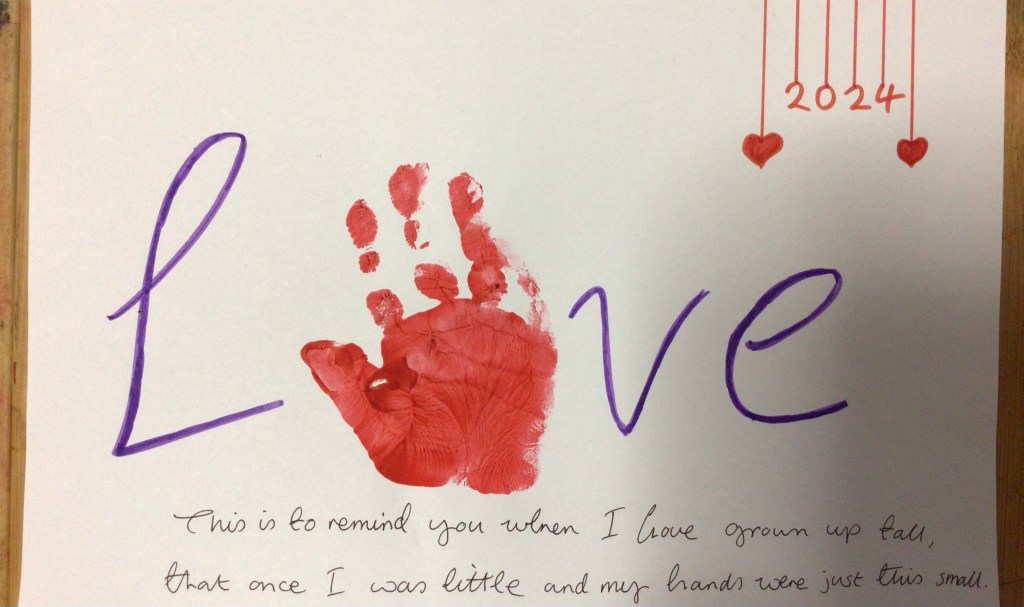 2024
Love
This is to remind you when I have grown up tall,
that once I was little and my hands were just this small.